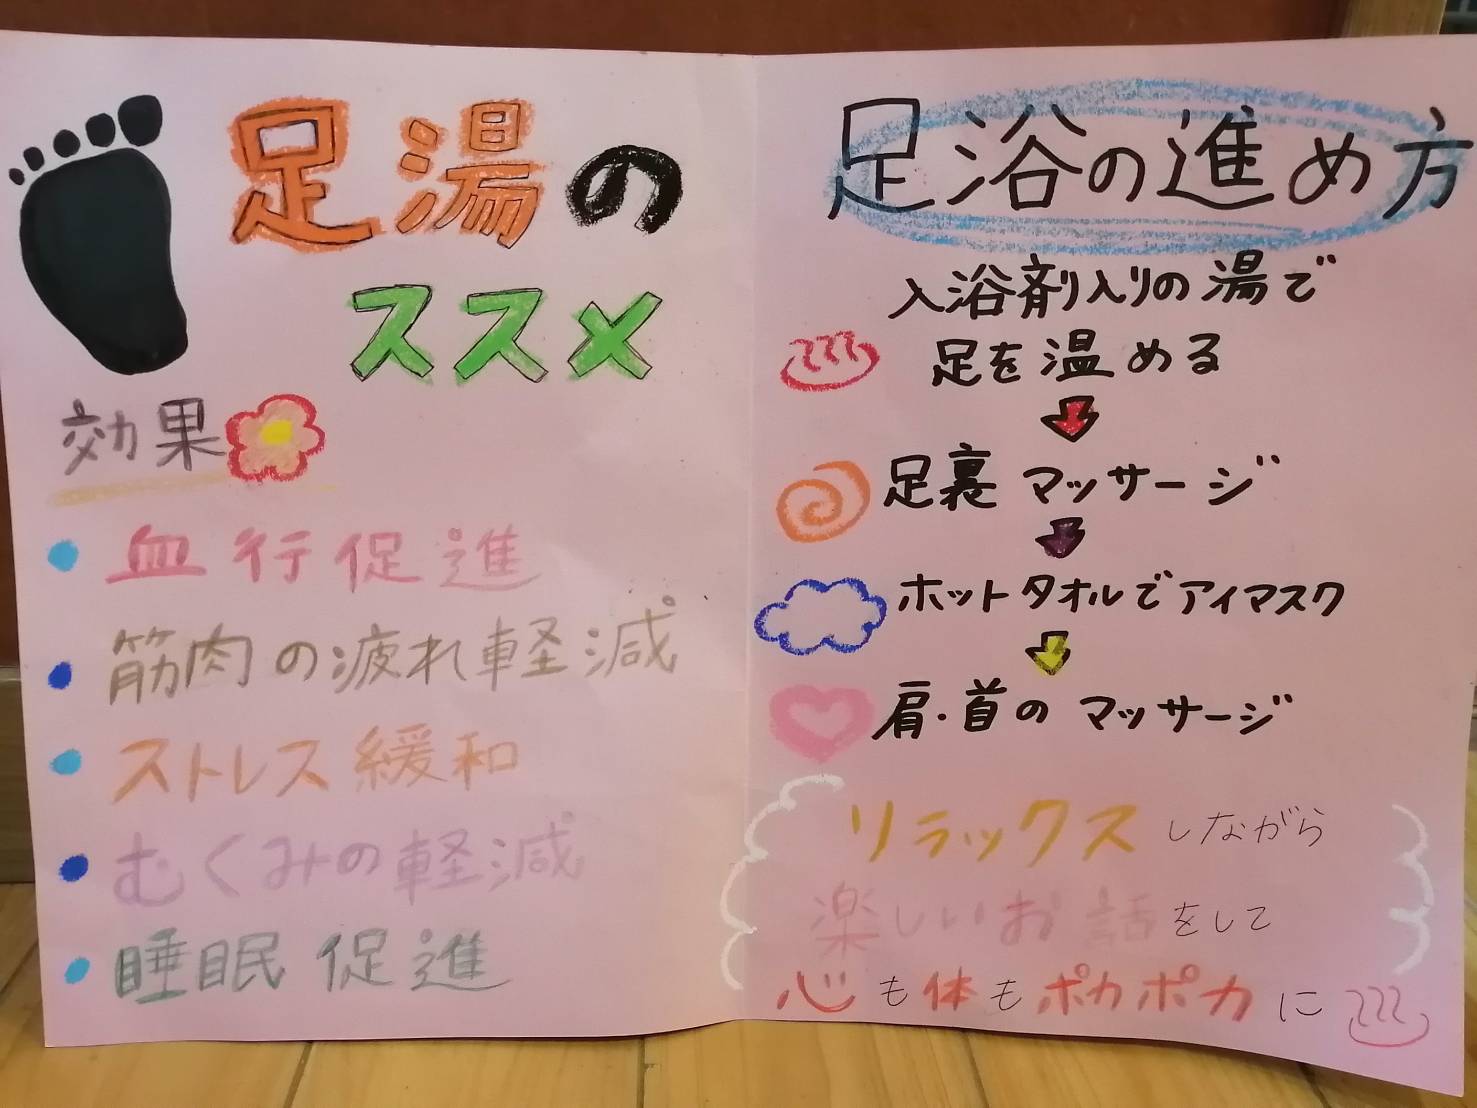 足湯の
ススメ
効果
血行促進
筋肉の疲れ軽減
ストレス緩和
むくみの軽減
睡眠促進
足浴の進め方
入浴剤入りの湯で
足を温める
足裏マッサージ
ホットタオルでアイマスク
肩・首のマッサージ
リラックスしながら
楽しいお話をして
心も体もポカポカに